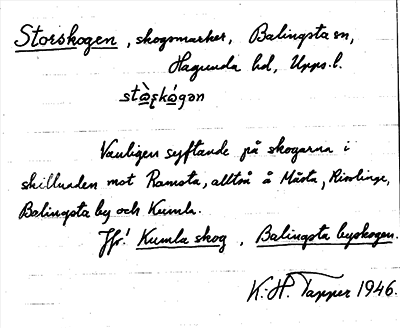 Storskogen, skogsmarker, Balingsta sn,
Hagunda hd, Upps. l.
stò̱ʂkó̱gən
Vanligen syftande på skogarna i
skillnaden mot Ramsta, alltså å Måsta,
Balingsta by och Kumla.
Jfr! Kumla skog, Balingsta byskogen.
K.H. Tapper 1946.